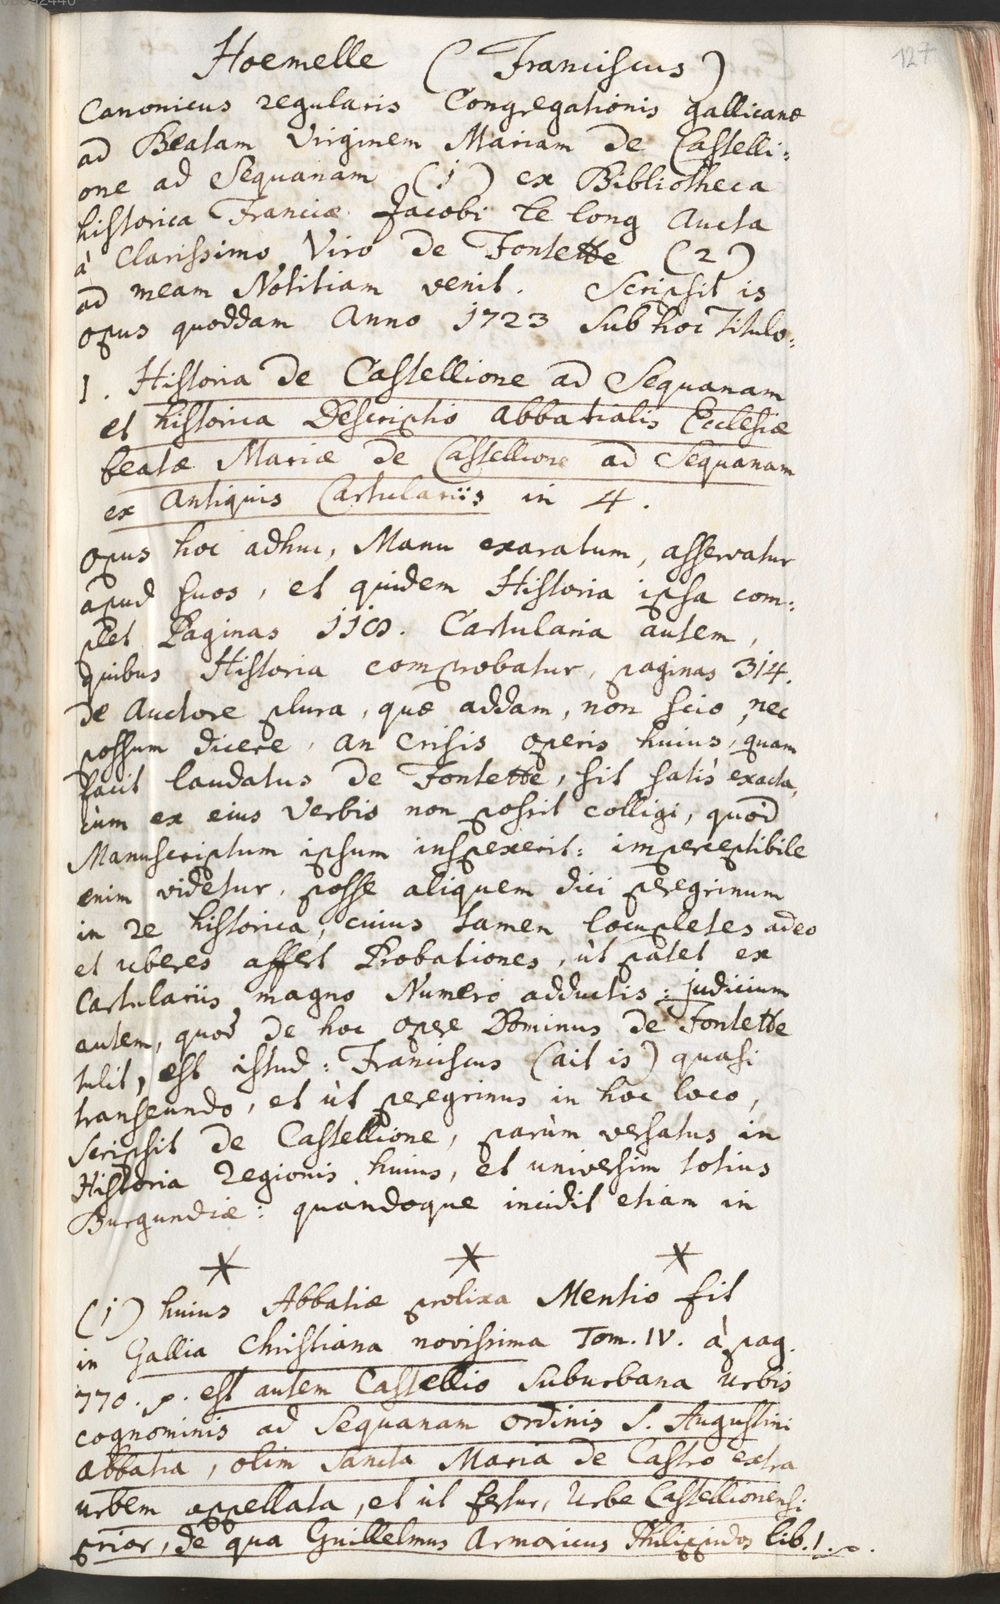 127
Hoemelle (Franciscus)
Canonicus regularis Congregationis gallicanæ
ad Beatam Virginem Mariam de Castelli:
one ad Sequanam (1) ex Bibliotheca
historica Franciæ Jacobi le long Aucta
à Clarissimo Viro de Fontette (2)
ad meam Notitiam venit. Scripsit is
opus quoddam Anno 1723 sub hoc Titulo:
1. Historia de Castellione ad Sequanam
et historica Descriptio abbatialis Ecclesiæ
beatæ Mariæ de Castellione ad Sequanam
ex Antiquis Cartulariis in 4.
opus hoc adhuc, Manu exaratum, asservatur
apud suos, et quidem Historia ipsa com:
plet Paginas Cartularia autem,
quibus Historia comprobatur, paginas 314.
de Auctore plura, quæ addam, non scio, nec
possum dicere, an crisis operis huius, quam
facit laudatus de Fontette, sit satis exacta,
cùm ex eius verbis non possit colligi, quòd
Manuscriptum ipsum inspexerit: imperceptibile
enim videtur, posse aliquem dici peregrinum
in re historica, cuius tamen locupletes adeo
et uberes affert Probationes, ùt patet ex
Cartulariis magno Numero adductis: judicium
autem, quod de hoc opere Dominus de Fontette
tulit, est istud: Franciscus (ait is) quasi
transeundo, et ùt peregrinus in hoc loco,
scripsit de Castellione, parùm versatus in
Historia regionis huius, et universim totius
Burgundiæ: quandoque incidit etiam in
* * *
(1) huius Abbatiæ prolixa Mentio fit
in Gallia Christiana novissima Tom. IV. à pag.
770. p. est autem Castellio suburbana urbis
cognominis ad Sequanam ordinis S. Augustini
abbatia, olim sancta Maria de Castro extra
urbem appellata, et ùt fertur, Urbe Castellionensi
prior, de qua Guillelmus Armoricus Philippidos lib. 1.